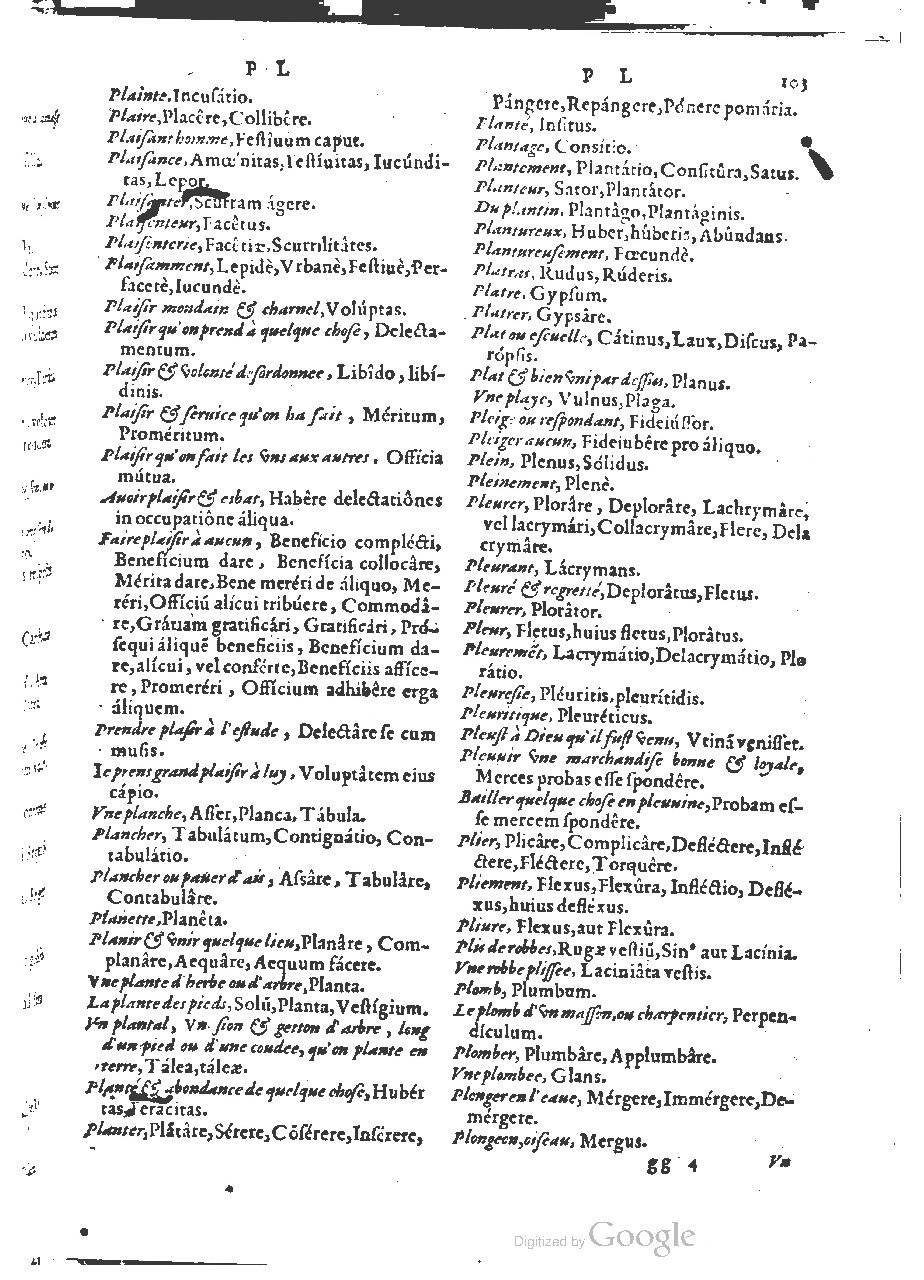 P L
Plainte, Incusátio.
Plaire, Placêre, Collibêre.
Plaisant homme, Festîuum caput.
Plaisance, Amœ́nitas, Festíuitas, Iucúndi-
tas, Lepor.
Plaisanter, Scurram ágere.
Plaisenteur, Facêtus.
Plaisenterie, Facêtiæ, Scurrilitâtes.
Plaisamment, Lepidè, Vrbanè, Festiuè, Per-
facetè, Iucundè.
Plaisir mondain & charnel, Volúptas.
Plaisir qu'on prend à quelque chose, Delecta-
mentum.
Plaisir & volonté desordonnee, Libîdo, libí-
dinis.
Plaisir & seruice qu'on ha fait, Méritum,
Proméritum.
Plaisir qu'on fait les vns aux autres, Officia
mútua.
Auoir plaisir & esbat, Habêre delectatiônes
in occupatiône áliqua.
Faire plaisir à aucun, Beneficio complécti,
Beneficium dare, Benefícia collocâre,
Mérita dare, Bene meréri de áliquo, Me-
réri, Offíciũ alícui tribúere, Commodâ-
re, Grátiam gratificári, Gratificári, Pró-
sequi áliquẽ beneficiis, Beneficium da-
re, alícui, vel conférre, Benefíciis affíce-
re, Promeréri, Officium adhibêre erga
áliquem.
Prendre plasir à l'estude, Delectâre se cum
musis.
Ie prens grand plaisir à luy, Voluptâtem eius
cápio.
Vne planche, Asser, Planca, Tábula.
Plancher, Tabulátum, Contignátio, Con-
tabulátio.
Plancher ou pauer d'ais, Assâre, Tabulâre,
Contabulâre.
Planette, Planêta.
Planir & vnir quelque lieu, Planâre, Com-
planâre, Aequâre, Aequum fácere.
Vne plante d'herbe ou d'arbre, Planta.
La plante des pieds, Solũ, Planta, Vestígium.
Vn plantal, Vn sion & getton d'arbre, long
d'un pied ou d'une coudee, qu'on plante en
terre, Tálea, táleæ.
Planté & abondance de quelque chose, Hubér
tas, Feracitas.
Planter, Plãtâre, Sérere, Cõsérere, Insérere,
P L 103
Pángere, Repángere, Pónere pomária.
Planté, Insitus.
Plantage, Consítio.
Plantement, Plantátio, Consitûra, Satus.
Planteur, Sator, Plantátor.
Du plantin, Plantâgo, Plantáginis.
Plantureux, Huber, húberis, Abúndans.
Plantureusement, Fœcundè.
Platras, Rudus, Rúderis.
Platre, Gypsum.
Platrer, Gypsâre.
Plat ou escuelle, Cátinus, Laux, Discus, Pa-
rópsis.
Plat & bien vni par dessus, Planus.
Vne playe, Vulnus, Plaga.
Pleige ou respondant, Fideiússor.
Pleiger aucun, Fideiubêre pro áliquo.
Plein, Plenus, Sólidus.
Pleinement, Plenè.
Pleurer, Plorâre, Deplorâre, Lachrymâre,
vel lacrymári, Collacrymâre, Flere, Dela
crymâre.
Pleurant, Lácrymans.
Pleuré & regretté, Deplorâtus, Fletus.
Pleurer, Plorâtor.
Pleur, Fletus, huius fletus, Plorâtus.
Pleuremẽt, Lacrymátio, Delacrymátio, Plo
rátio.
Pleuresie, Pléuritis, pleurítidis.
Pleuritique, Pleuréticus.
Pleust à Dieu qu'il fust venu, Vtinã venisset.
Pleuuir vne marchandise bonne & loyale,
Merces probas esse spondêre.
Bailler quelque chose en pleuuine, Probam es-
se mercem spondêre.
Plier, Plicâre, Complicâre, Defléctere, Inflé
ctere, Fléctere, Torquêre.
Pliement, Flexus, Flexûra, Infléctio, Deflé-
xus, huius defléxus.
Pliure, Flexus, aut Flexûra.
Plis de robbes, Rugæ vestiũ, Sin⁹ aut Lacínia.
Vne robbe plissee, Laciniâta vestis.
Plomb, Plumbum.
Le plomb d'vn masson, ou charpentier, Perpen-
dículum.
Plomber, Plumbâre, Applumbâre.
Vne plombee, Glans.
Plonger en l'eaue, Mérgere, Immérgere, De-
mérgere.
Plongeon, oiseau, Mergus.
gg 4 Vn
Digitized by Google